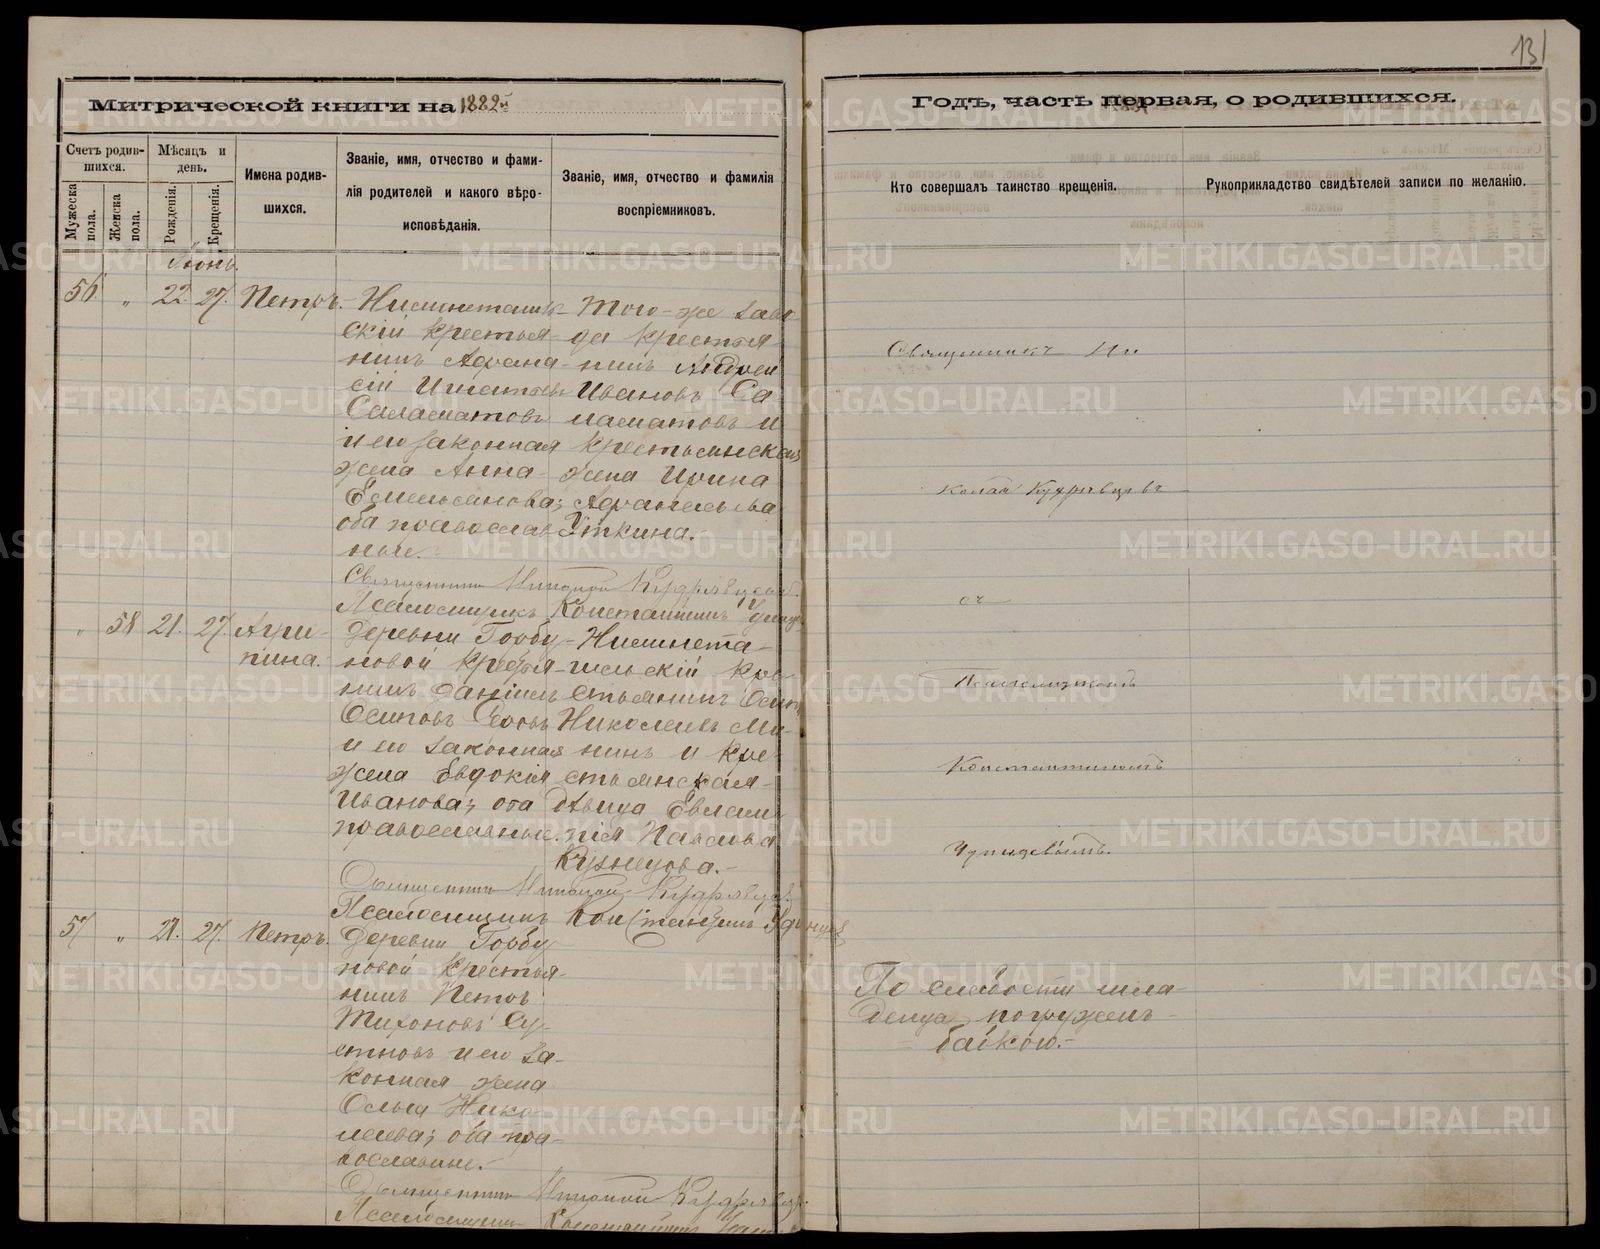 131
Митрической книги на 1882й
Годъ, часть первая, о родившихся.
Счетъ родив-
шихся.
Мужеска
пола.
Женска
пола.
Мѣсяцъ и
день.
Рожденія.
Крещенія.
Имена родив-
шихся.
Званіе, имя, отчество и фами-
лія родителей и какого вѣро-
исповѣданія.
Званіе, имя, отчество и фамилія
воспріемниковъ.
Кто совершалъ таинство крещенія.
Рукоприкладство свидѣтелей записи по желанію.
Іюнь.
56 „ 22. 27. Петръ.
скій крестья-
нинъ Афана-
сій Игнатьевъ
Саламатовъ
и его законная
жена Анна
Емельянова; оба православ-
ные.
Того-же заво-
да крестья-
нинъ Андрей
Ивановъ Са-
ламатовъ и
крестьянская
жена Ирина
Афанасьева
Уткина.-
Священникъ Николай Кудрявцевъ.
Псаломщикъ Константинъ
„ 58 21. 27. Агри-
пина.
Деревни Горбу-
новой крестья-
нинъ Даніилъ
Осиповъ
и его законная
жена Евдокія
Иванова; оба
православные.
скій кре-
стьянинъ Осипъ
Николаевъ Ми-
нинъ и кре-
стьянская
дѣвица Евлам-
пія Павлова
Кузнецова.-
Священникъ Николай Кудрявцевъ.
Псаломщикъ Константинъ
57 „ 21. 27. Петръ.
Деревни Горбу-
новой крестья-
нинъ Петръ
Тихоновъ
и его за-
конная жена
Ольга Нико-
лаева; оба пра-
вославные.-
Священникъ Николай Кудрявцевъ.
Псаломщикъ Константинъ
Священникъ Ни-
колай Кудрявцевъ
съ
Псаломщикомъ
Константиномъ
По слабости мла-
денца погруженъ
бабкою.-
METRIKI.GASO-URAL.RU